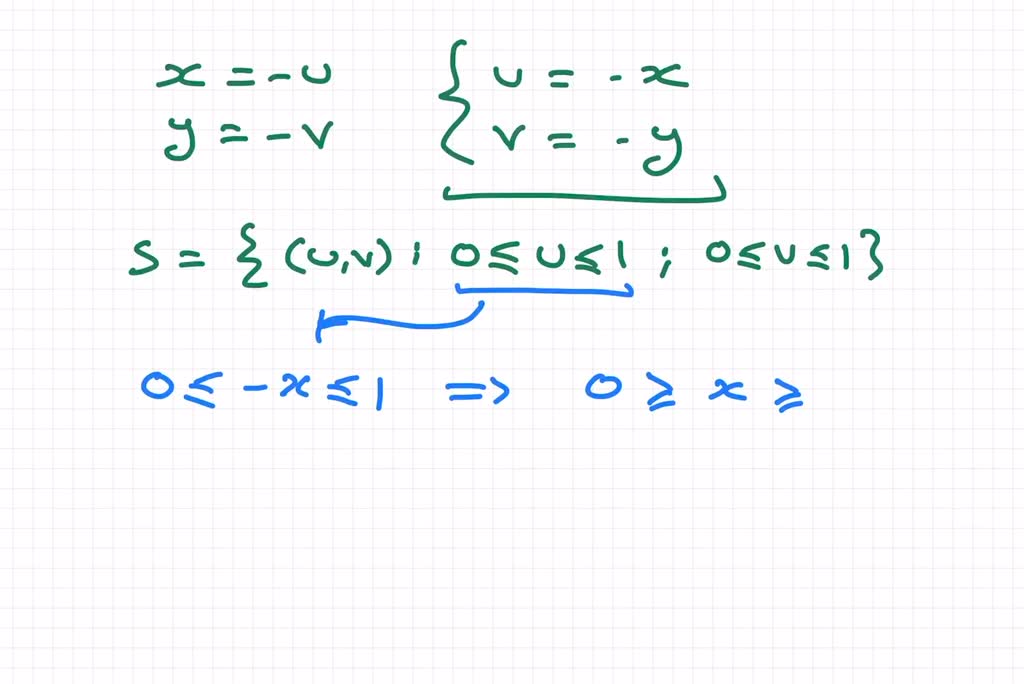 x = -u { u = -x
y = -v v = -y
S = { (u,v) : 0 ≤ u ≤ 1 ; 0 ≤ v ≤ 1 }
0 ≤ -x ≤ 1 => 0 ≥ x ≥